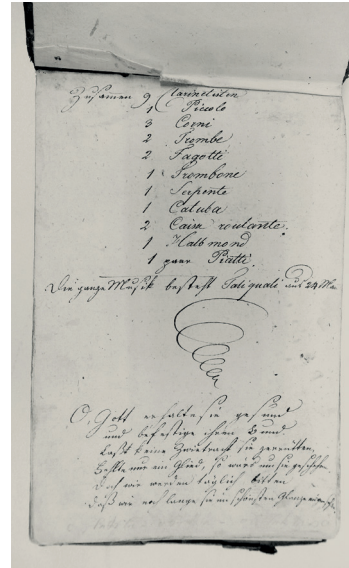 Zusamen 9 Clarinetisten
1 Piccolo
3 Corni
2 Trombe
2 Fagotti
1 Trombone
1 Serpente
1 Catuba
2 Caisse roulante.
1 Halbmond
1 paar Piatti.
Die ganze Musik besteht Taliquali aus 24 Ma
O, Gott erhalte sie gesund
und befestige ihren Bund
Laßt keine Zwietracht sie zerrütten,
Fehlte nur ein Glied, so ward um sie geschehen
Doch wir werden täglich bitten
Daß wir noch lange sie im schönsten Glanze